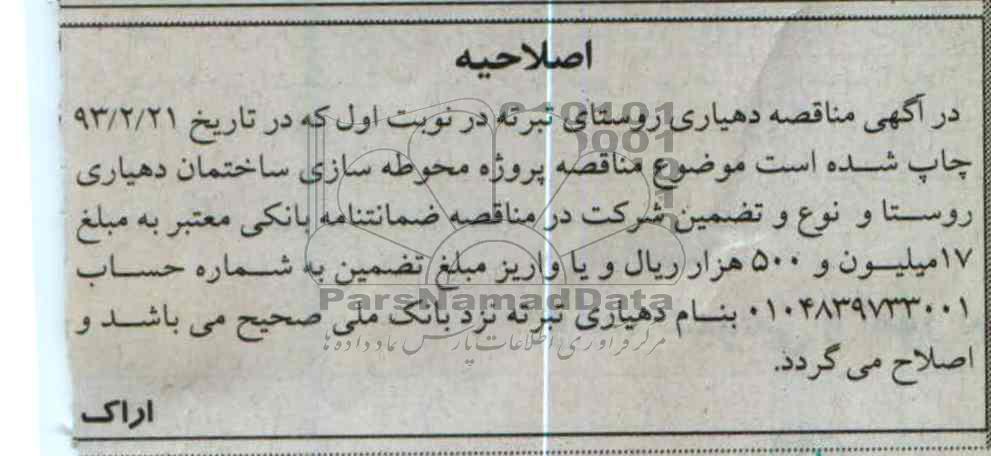 اصلاحیه
در آگهی مناقصه دهیاری روستای تبرته در نوبت اول که در تاریخ ۹۳/۲/۲۱
چاپ شده است موضوع مناقصه پروژه محوطه سازی ساختمان دهیاری
روستا و نوع و تضمین شرکت در مناقصه ضمانتنامه بانکی معتبر به مبلغ
۱۷میلیون و ۵۰۰ هزار ریال و یا واریز مبلغ تضمین به شماره حساب
۰۱۰۴۸۳۹۷۳۳۰۰۱ بنام دهیاری تبرته نزد بانک ملی صحیح می باشد و
اصلاح می گردد.
اراک
ParsNamadData
مرکز فرآوری اطلاعات پارس نماد داده ها